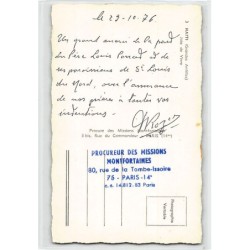 le 29-10-76
Un grand merci de la part
du Père Louis Conrad et de
ses paroissiens de St Louis
du Nord, avec l'assurance
de nos prières à toutes vos
intentions.
PROCUREUR DES MISSIONS
MONTFORTAINES
80, rue de la Tombe-Issoire
75 - PARIS - 14e
c.c. 14.813.52 Paris
HAITI
Photographie
Véritable